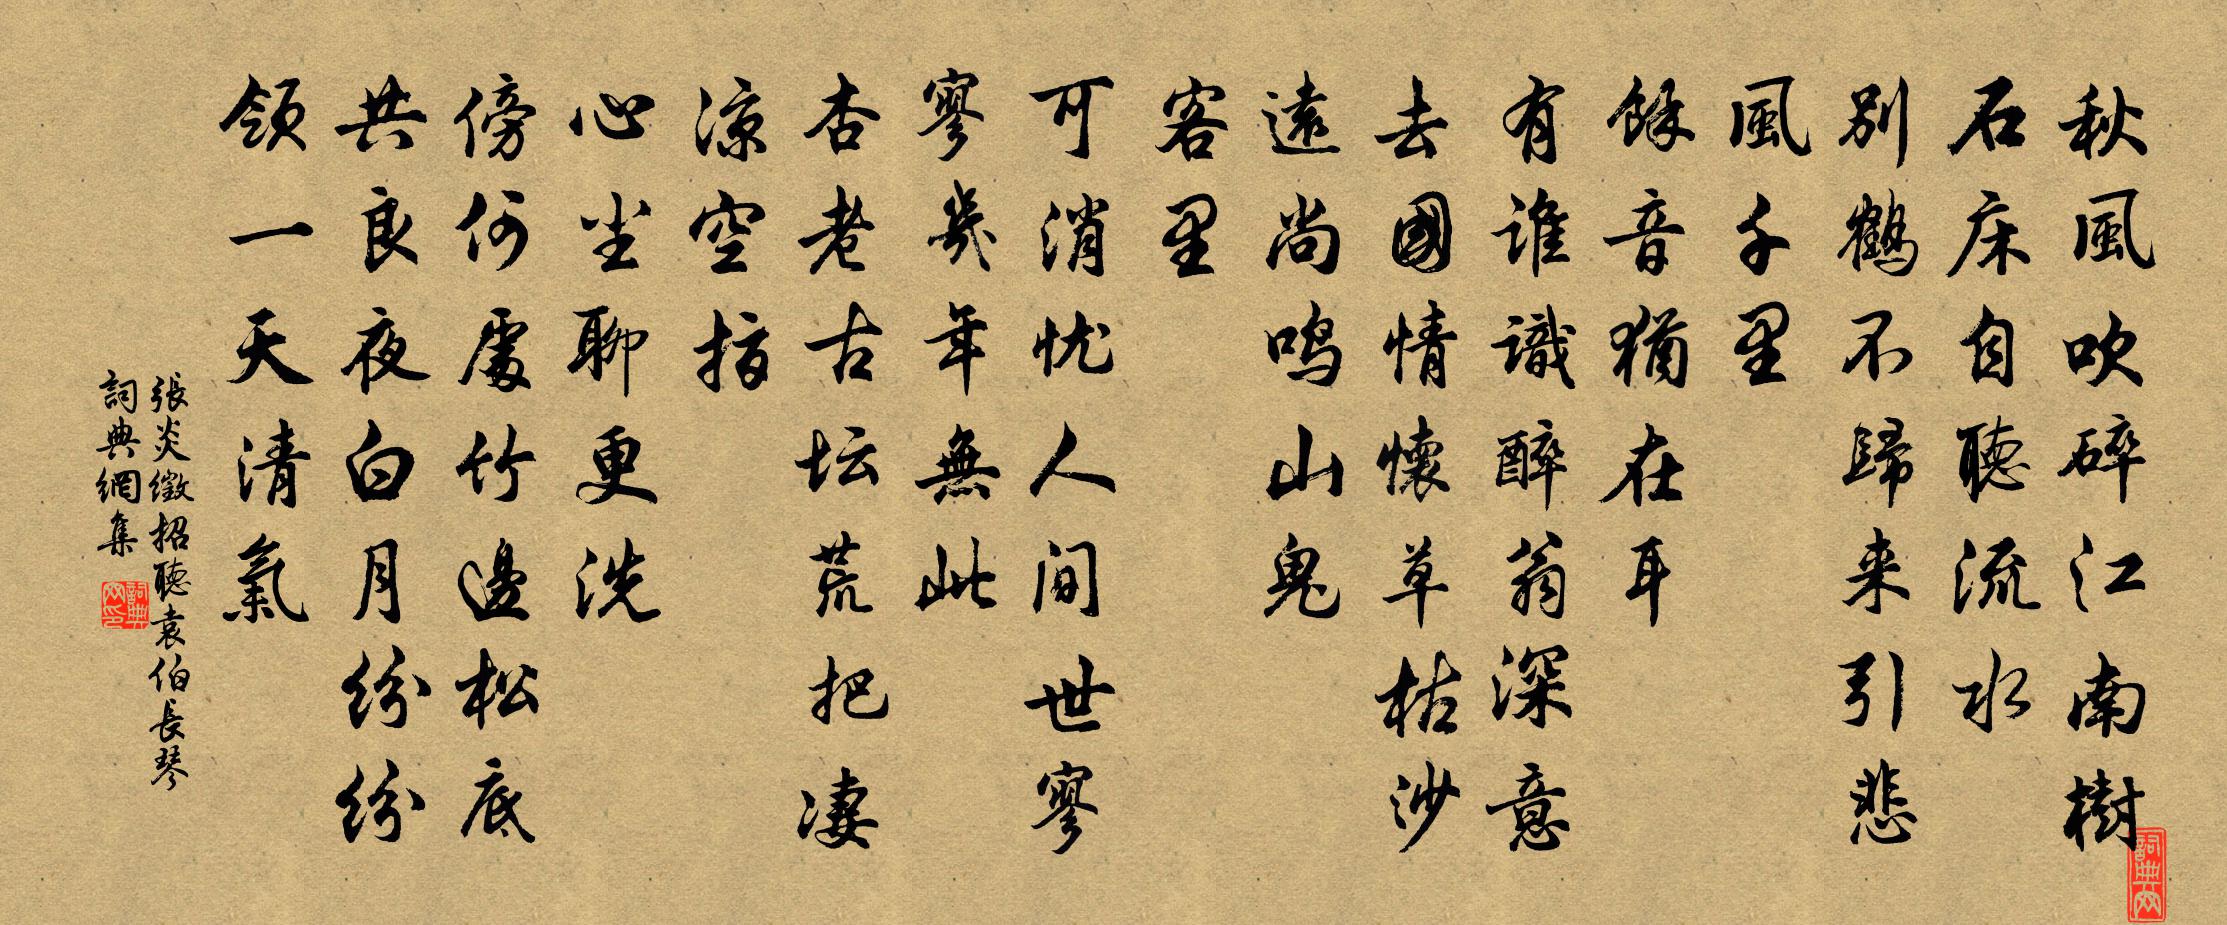 秋風吹碎江南樹
石床自聽流水
別鶴不歸来引悲
風千里
餘音猶在耳
有誰識醉翁深意
去國情懷草枯沙
遠尚鸣山鬼
客里
可消忧人间世寥
寥幾年無此
杏老古坛荒把凄
凉空指
心尘聊更洗
傍何處竹邊松底
共良夜白月纷纷
领一天清氣
張炎徵招聽袁伯長琴
詞典網集
詞典网
詞典网印